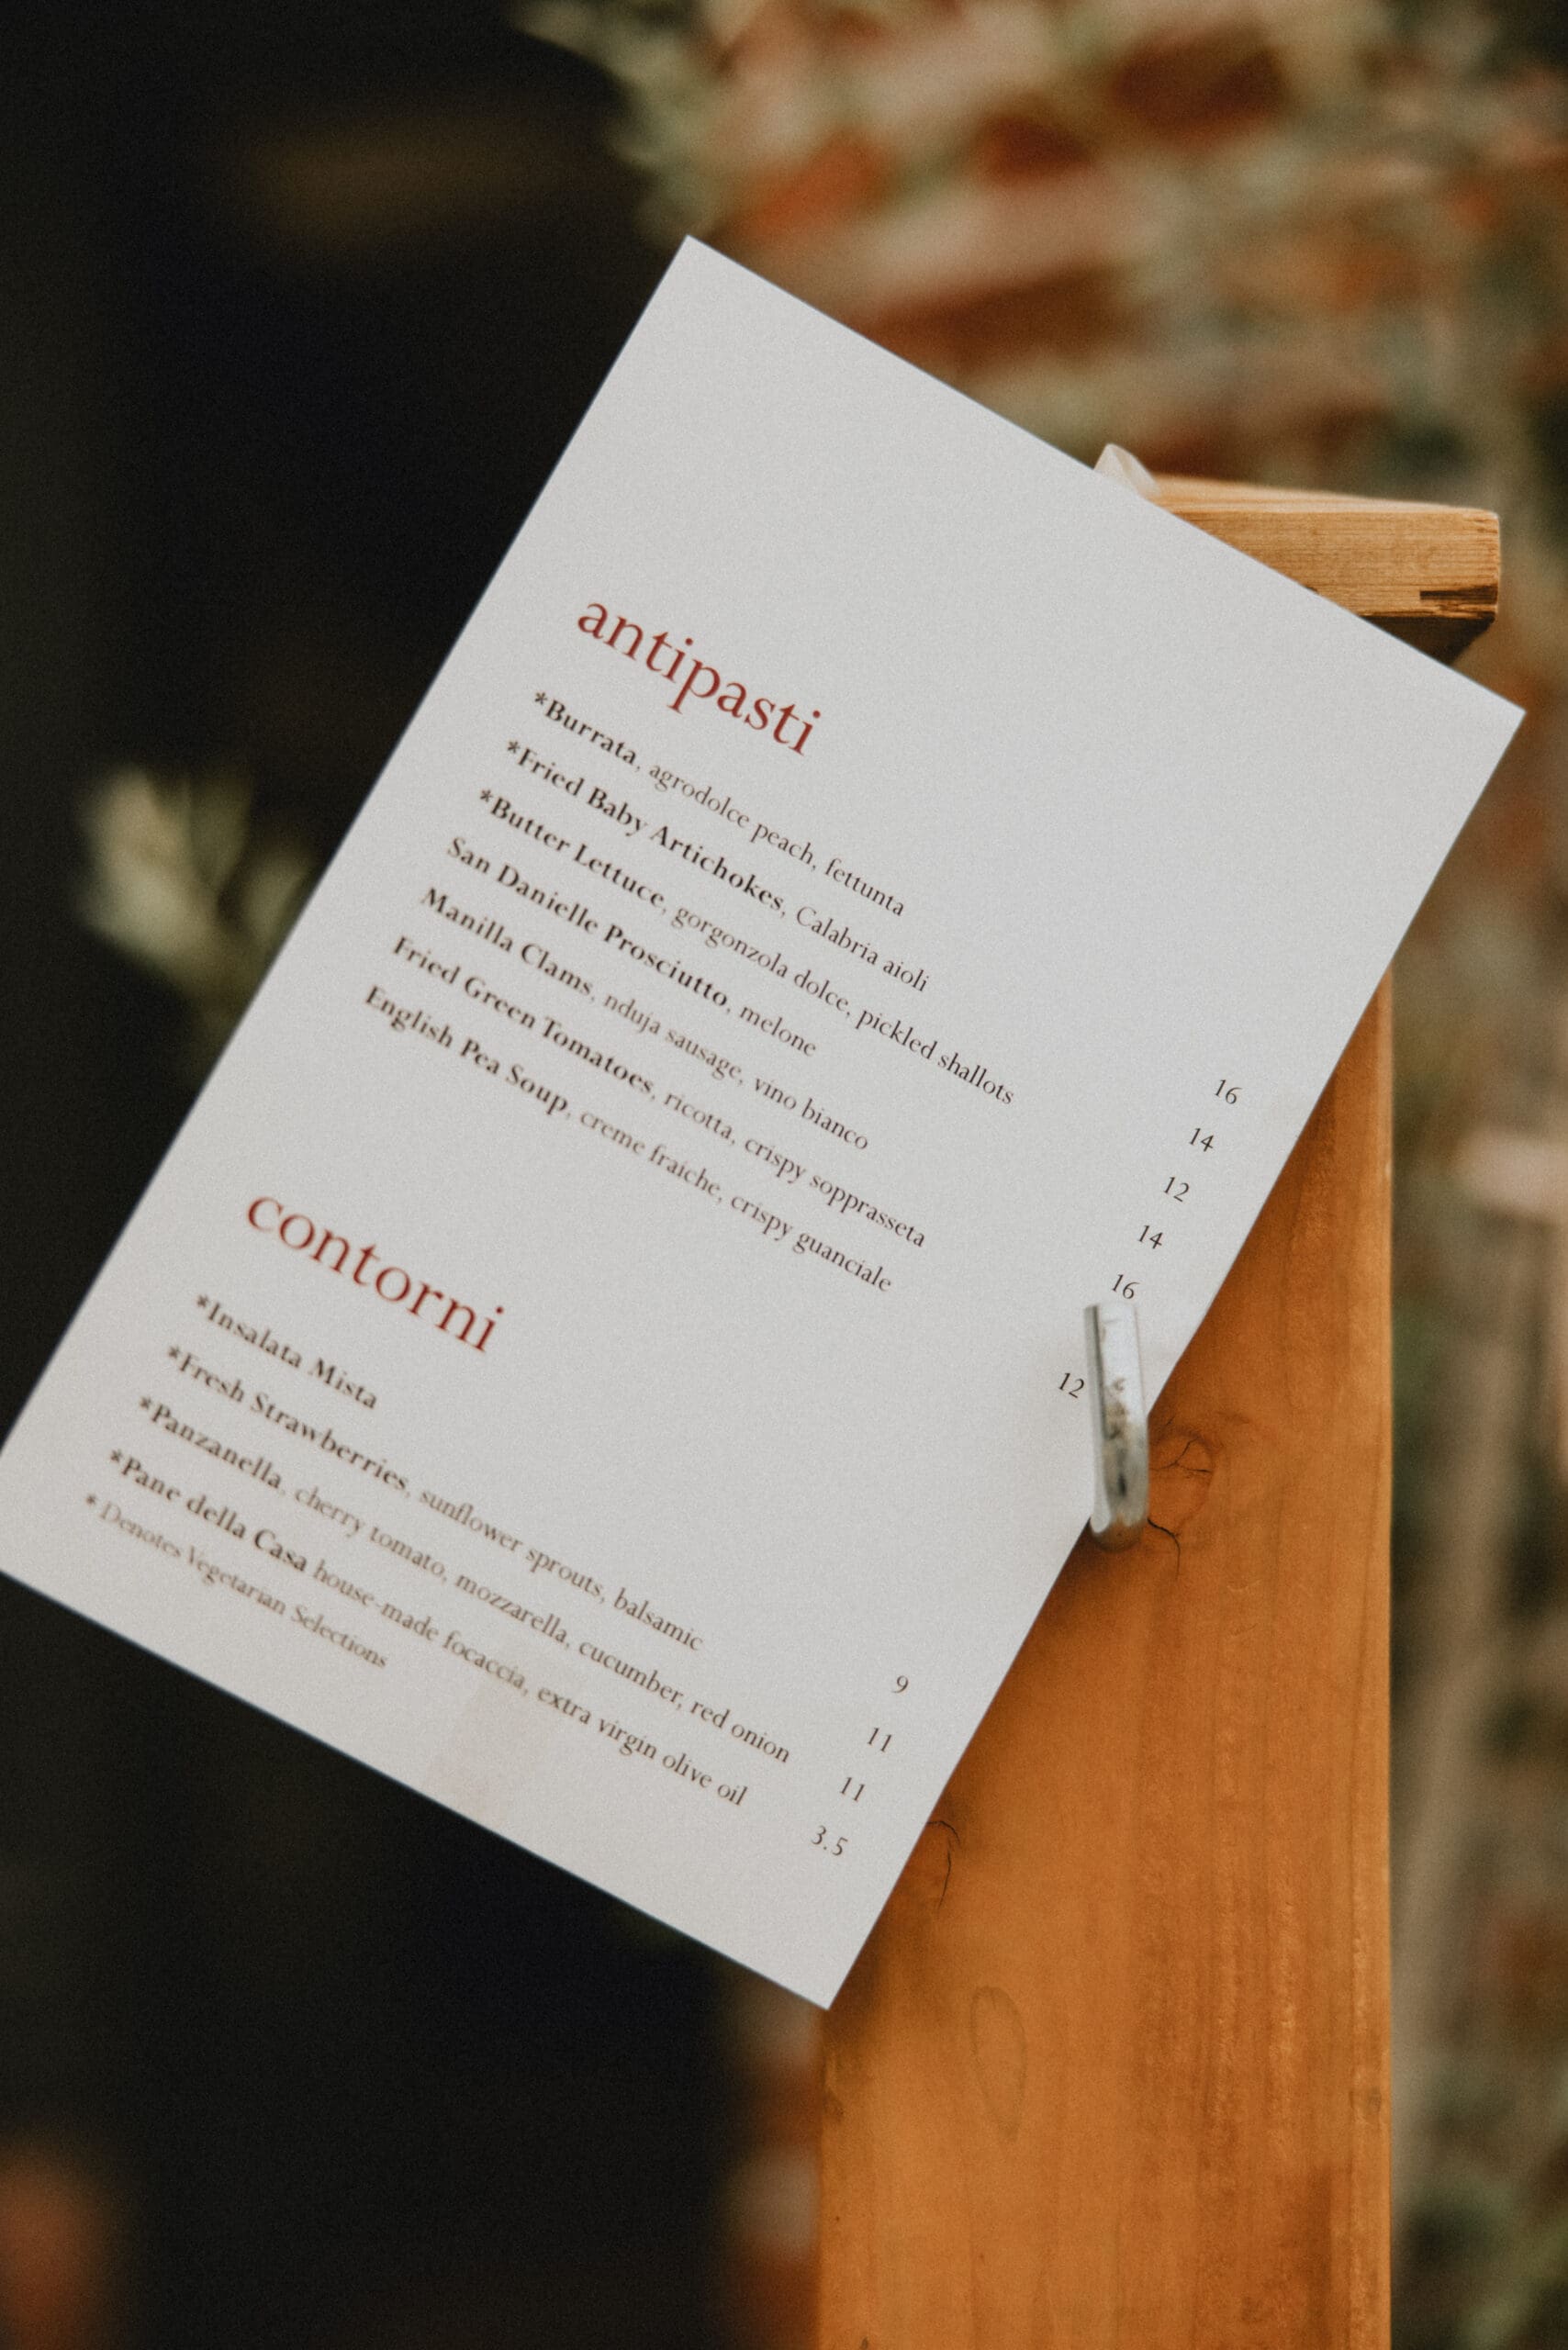 antipasti
*Burrata, agrodolce peach, fettunta 16
*Fried Baby Artichokes, Calabria aioli 14
*Butter Lettuce, gorgonzola dolce, pickled shallots 12
San Danielle Prosciutto, melone 14
Manilla Clams, nduja sausage, vino bianco 16
Fried Green Tomatoes, ricotta, crispy sopprasseta
English Pea Soup, creme fraiche, crispy guanciale 12
contorni
*Insalata Mista 9
*Fresh Strawberries, sunflower sprouts, balsamic 11
*Panzanella, cherry tomato, mozzarella, cucumber, red onion 11
*Pane della Casa house-made focaccia, extra virgin olive oil 3.5
* Denotes Vegetarian Selections